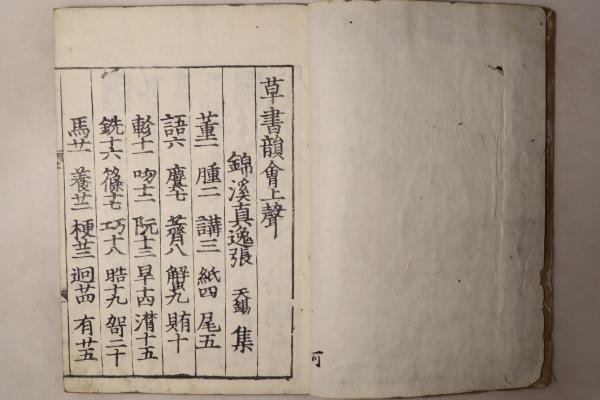 草書韻會上聲
錦溪真逸張 天錫 集
董一 腫二 講三 紙四 尾五
語六 麌七 薺八 蟹九 賄十
軫十一 吻十二 阮十三 旱十四 潸十五
銑十六 篠十七 巧十八 晧十九 哿二十
馬廿一 養廿二 梗廿三 迥廿四 有廿五
可